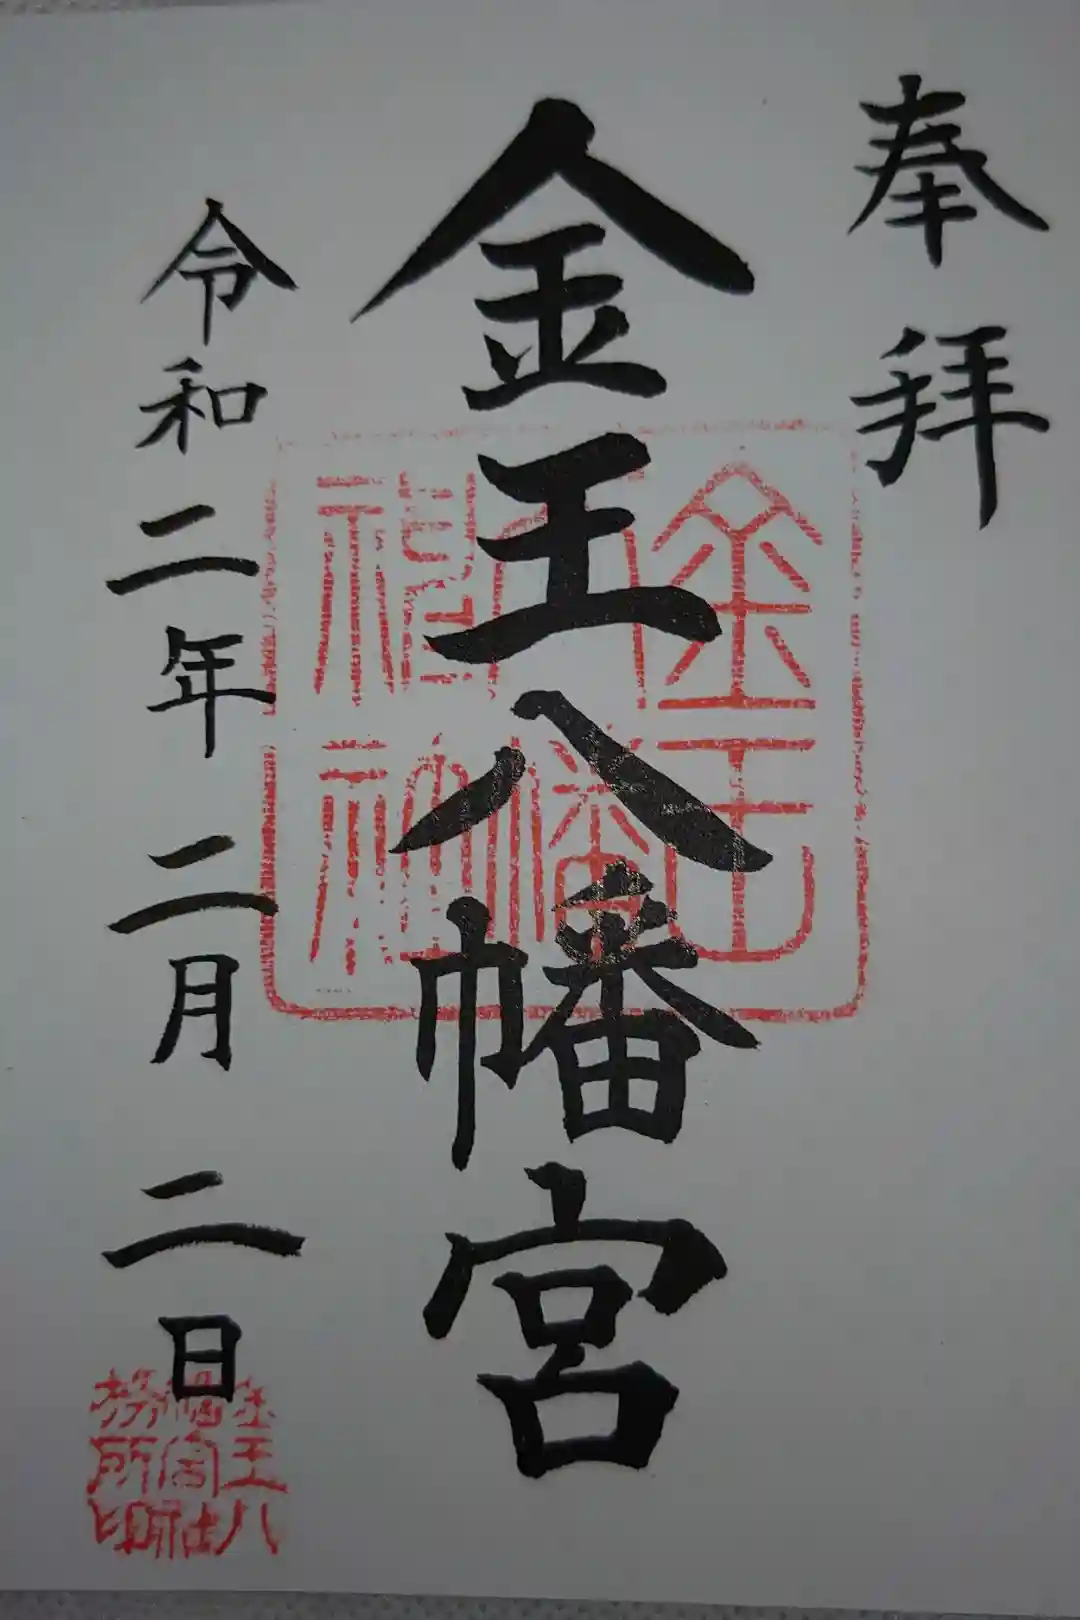 奉拝
金王八幡宮
令和二年二月二日
金王八
幡宮社
務所印